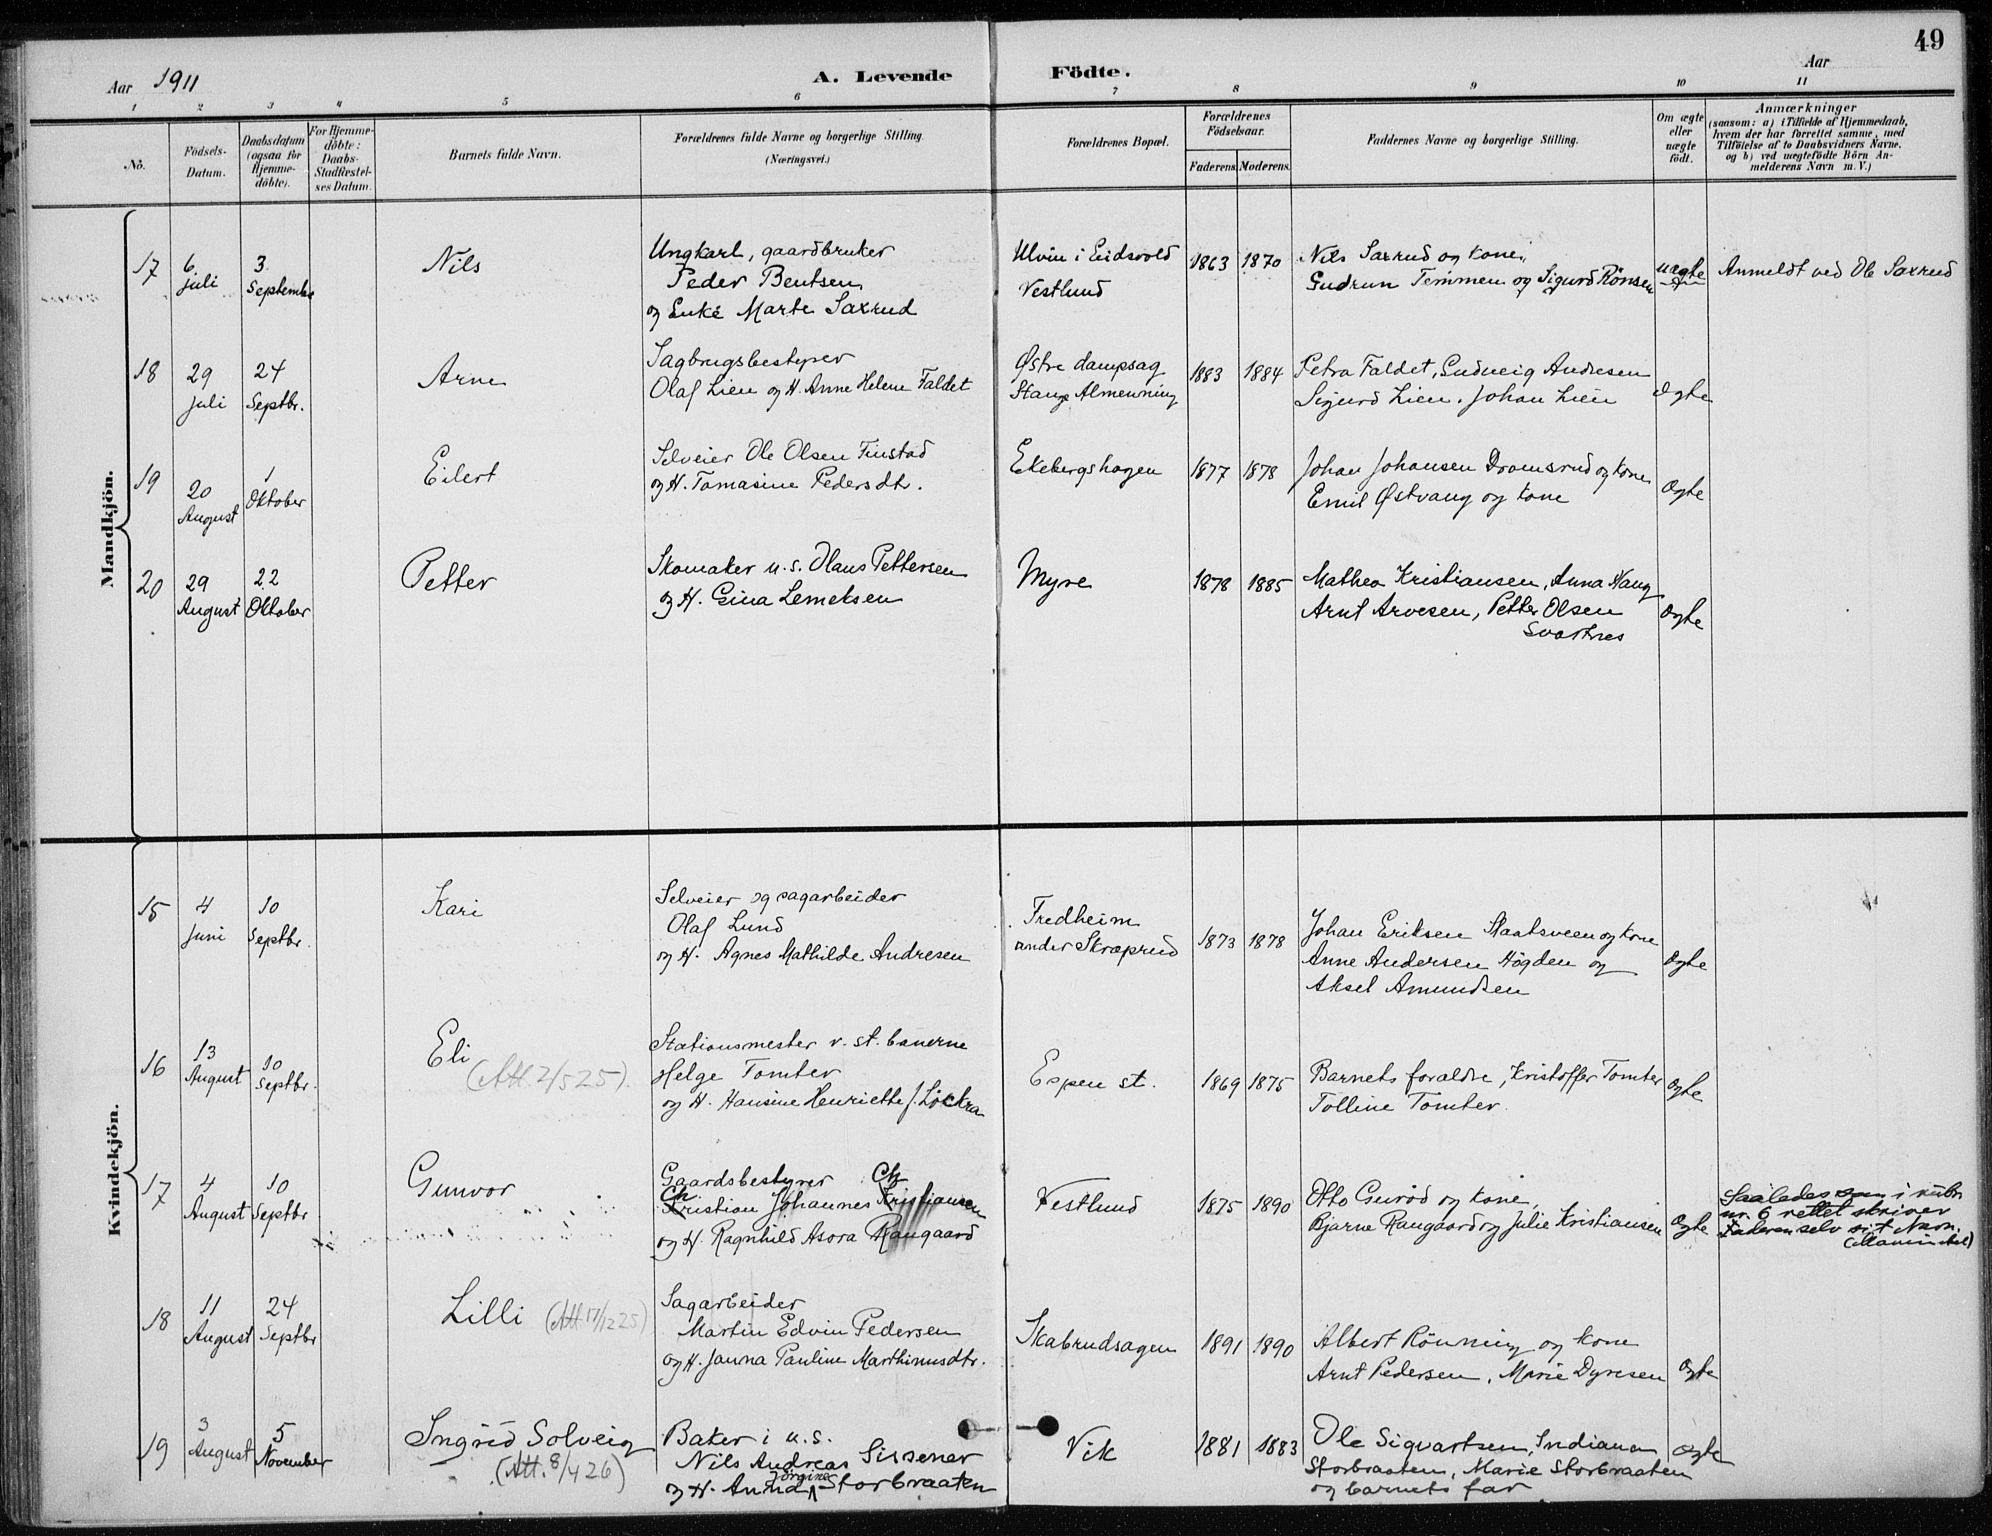 49
Aar 1911
A. Levende Födte.
Aar
1 2 3 4 5 6 7 8 9 10 11
No.
Födsels-
Datum.
Daabsdatum
(ogsaa for
Hjemme-
döbte).
For Hjemme-
döbte:
Daabs-
Stadfæstel-
ses Datum.
Barnets fulde Navn.
Forældrenes fulde Navne og borgerlige Stilling.
(Næringsvei.)
Forældrenes Bopæl.
Forældrenes
Födselsaar.
Faderens. Moderens.
Faddernes Navne og borgerlige Stilling.
Om ægte
eller
uægte
födt.
Anmærkninger
(saasom: a) i Tilfælde af Hjemmedaab,
hvem der har forrettet samme, med
Tilföielse af to Daabsvidners Navne.
og b) ved uægtefödte Börn An-
melderens Navn m. V.)
Mandkjön.
17
6
juli
3
September
Nils
Ungkarl, gaardbruker
Peder Bentsen
og Enke Marte Saxrud
Ulvin i Eidsvold
Vestlund
1863 1870
Nils Saxrud og kone,
Gudrun Temmen og Sigurd Rönsen
uægte
Anmeldt ved Ole Saxrud
18
29
juli
24
Septbr.
Arne
Sagbrugsbestyrer
Olaf Lien og H. Anne Helene Faldet
Østre dampsag
Stange Almenning
1883 1884
Petra Faldet, Gudveig Andresen
Sigurd Lien. Johan Lien
Ægte
19
20
August
1
Oktober
Eilert
Selveier Ole Olsen Finstad
og H. Tomasine Pedersdtr.
Ekebergshagen
1877 1878
Johan Johansen Dromsrud og kone
Emil Østvang og kone
Ægte
20
29
August
22
Oktober
Petter
Skomaker u.s. Olaus Pettersen
og H. Gina Lemeksen
Myre
1878 1885
Mathea Kristiansen, Anna Haug
Arnt Arvesen, Petter Olsen
Svartnes
Ægte
Kvindekjön.
15
4
juni
10
Septbr.
Kari
Selveier og sagarbeider
Olaf Lund
og H. Agnes Mathilde Andresen
Fredheim
under Skræprud
1873 1878
Johan Eriksen Staatsveen og kone
Anne Andersen Högden og
Aksel Amundsen
Ægte
16
13
August
10
Septbr.
Eli
(Att. 2/5 25).
Stationsmester v. st. banerne
Helge Tomter
og H. Hansine Henriette J. Löckra
Espen st.
1869 1875
Barnets forældre, Kristoffer Tomter
Tolline Tomter.
Ægte
17
4
August
10
Septbr
Gunvor
Gaardsbestyrer Ch
Ch
Kristian Johannes Kristiansen
og H. Ragnhild Asora Rangaard
Vestlund
1875 1890
Otto Gueröd og kone,
Bjarne Rangaard og Julie Kristiansen
Ægte
Saaledes som i rubr.
nr. 6 rettet skriver
Faderen selv sit Navn.
18
11
August
24
Septbr
Lilli (Att. 17/12 25)
Sagarbeider
Martin Edvin Pedersen
og H. Janna Pauline Marthinusdtr.
Skabrudsagen
1891 1890
Albert Rönning og kone
Arnt Pedersen, Marie Dyresen
Ægte
19
3
August
5
November
Ingrid Solveig
(Att. 8/4 26)
Baker i u.s.
Nils Andreas Sissener
Jörgine
og H. Anna Storbraaten
Vik
1881 1883
Ole Sigvartsen, Indiana
Storbraaten, Marie Storbraaten
og barnets far
Ægte